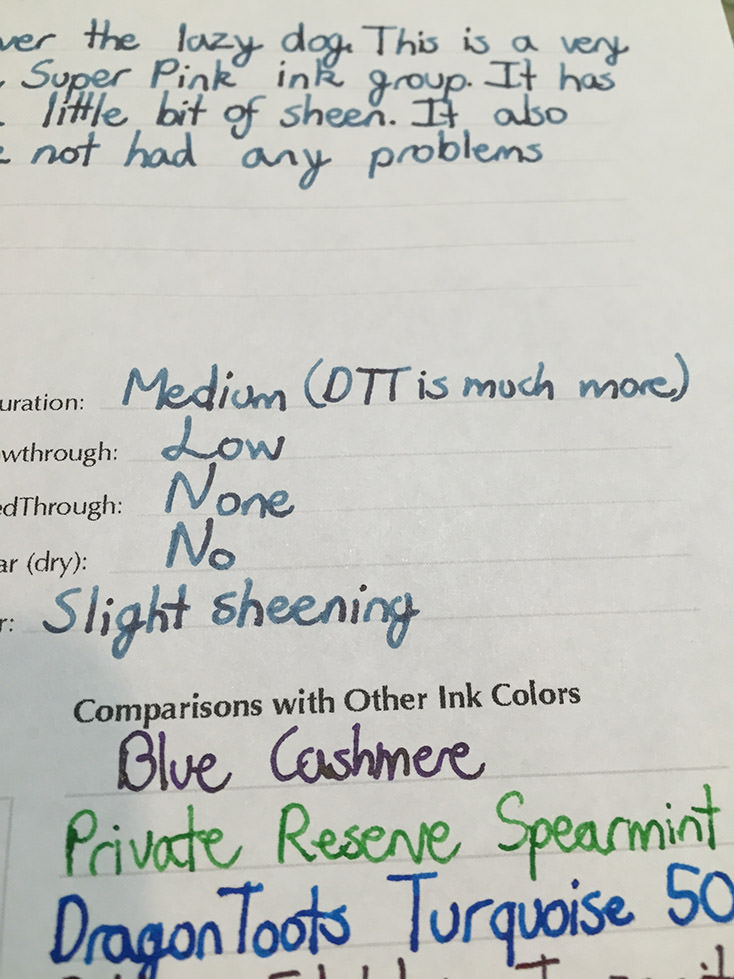 ver the lazy dog. This is a very
Super Pink ink group. It has
little bit of sheen. It also
not had any problems
uration: Medium (DTT is much more)
wthrough: Low
edThrough: None
ar (dry): No
r: Slight sheening
Comparisons with Other Ink Colors
Blue Cashmere
Private Reserve Spearmint
DragonToots Turquoise 50